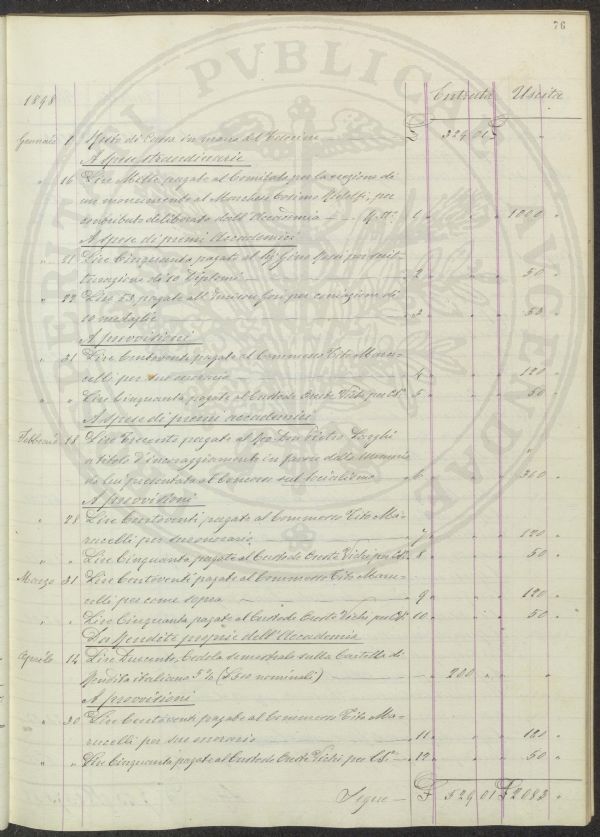 76
Entrata Uscita
1898
Gennaio 1 Resto di Cassa in mano del Tesoriere £ 329 01 £ "
A spese straordinarie
" 16 Lire Mille pagate al Comitato per la erezione di
un monumento al Marchese Cosimo Ridolfi, per
contributo deliberato dall'Accademia 1 " " " 1000 "
A spese di premi Accademici
" 21 Lire Cinquanta pagate al per
di 10 Diplomi 2 " " " 50 "
" 22 Lire 53 pagate all' per coniazione di
10 medaglie 3 " " " 53 "
A provvisioni
" 31 Lire Centoventi pagate al Commesso Tito Maru-
celli per suo onorario 4 " " " 120 "
" " Lire Cinquanta pagate al Custode Oreste Vichi per Cs. 5 " " " 50 "
A spese di premi accademici
Febbraio 18 Lire pagate al Pietro
a titolo d'incoraggiamento in favore della Memoria
da lui presentata al Concorso sul Socialismo 6 " " " 360 "
A provvisioni
" 28 Lire Centoventi pagate al Commesso Tito Ma-
rucelli per suo onorario 7 " " " 120 "
" " Lire Cinquanta pagate al Custode Oreste Vichi per Cs. 8 " " " 50 "
Marzo 31 Lire Centoventi pagate al Commesso Tito Maru-
celli per come sopra 9 " " " 120 "
" " Lire Cinquanta pagate al Custode Oreste Vichi per Cs. 10 " " " 50 "
Da Rendite proprie dell'Accademia
Aprile 14 Lire Duecento, Cedola semestrale sulla Cartella di
Rendita italiana (£ nominali) " 200 " " "
A provvisioni
" 30 Lire Centoventi pagate al Commesso Tito Ma-
rucelli per suo onorario 11 " " " 120 "
" " Lire Cinquanta pagate al Custode Oreste Vichi per Cs. 12 " " " 50 "
Segue £ 529 01 £ 2083 "
PVBLICAE